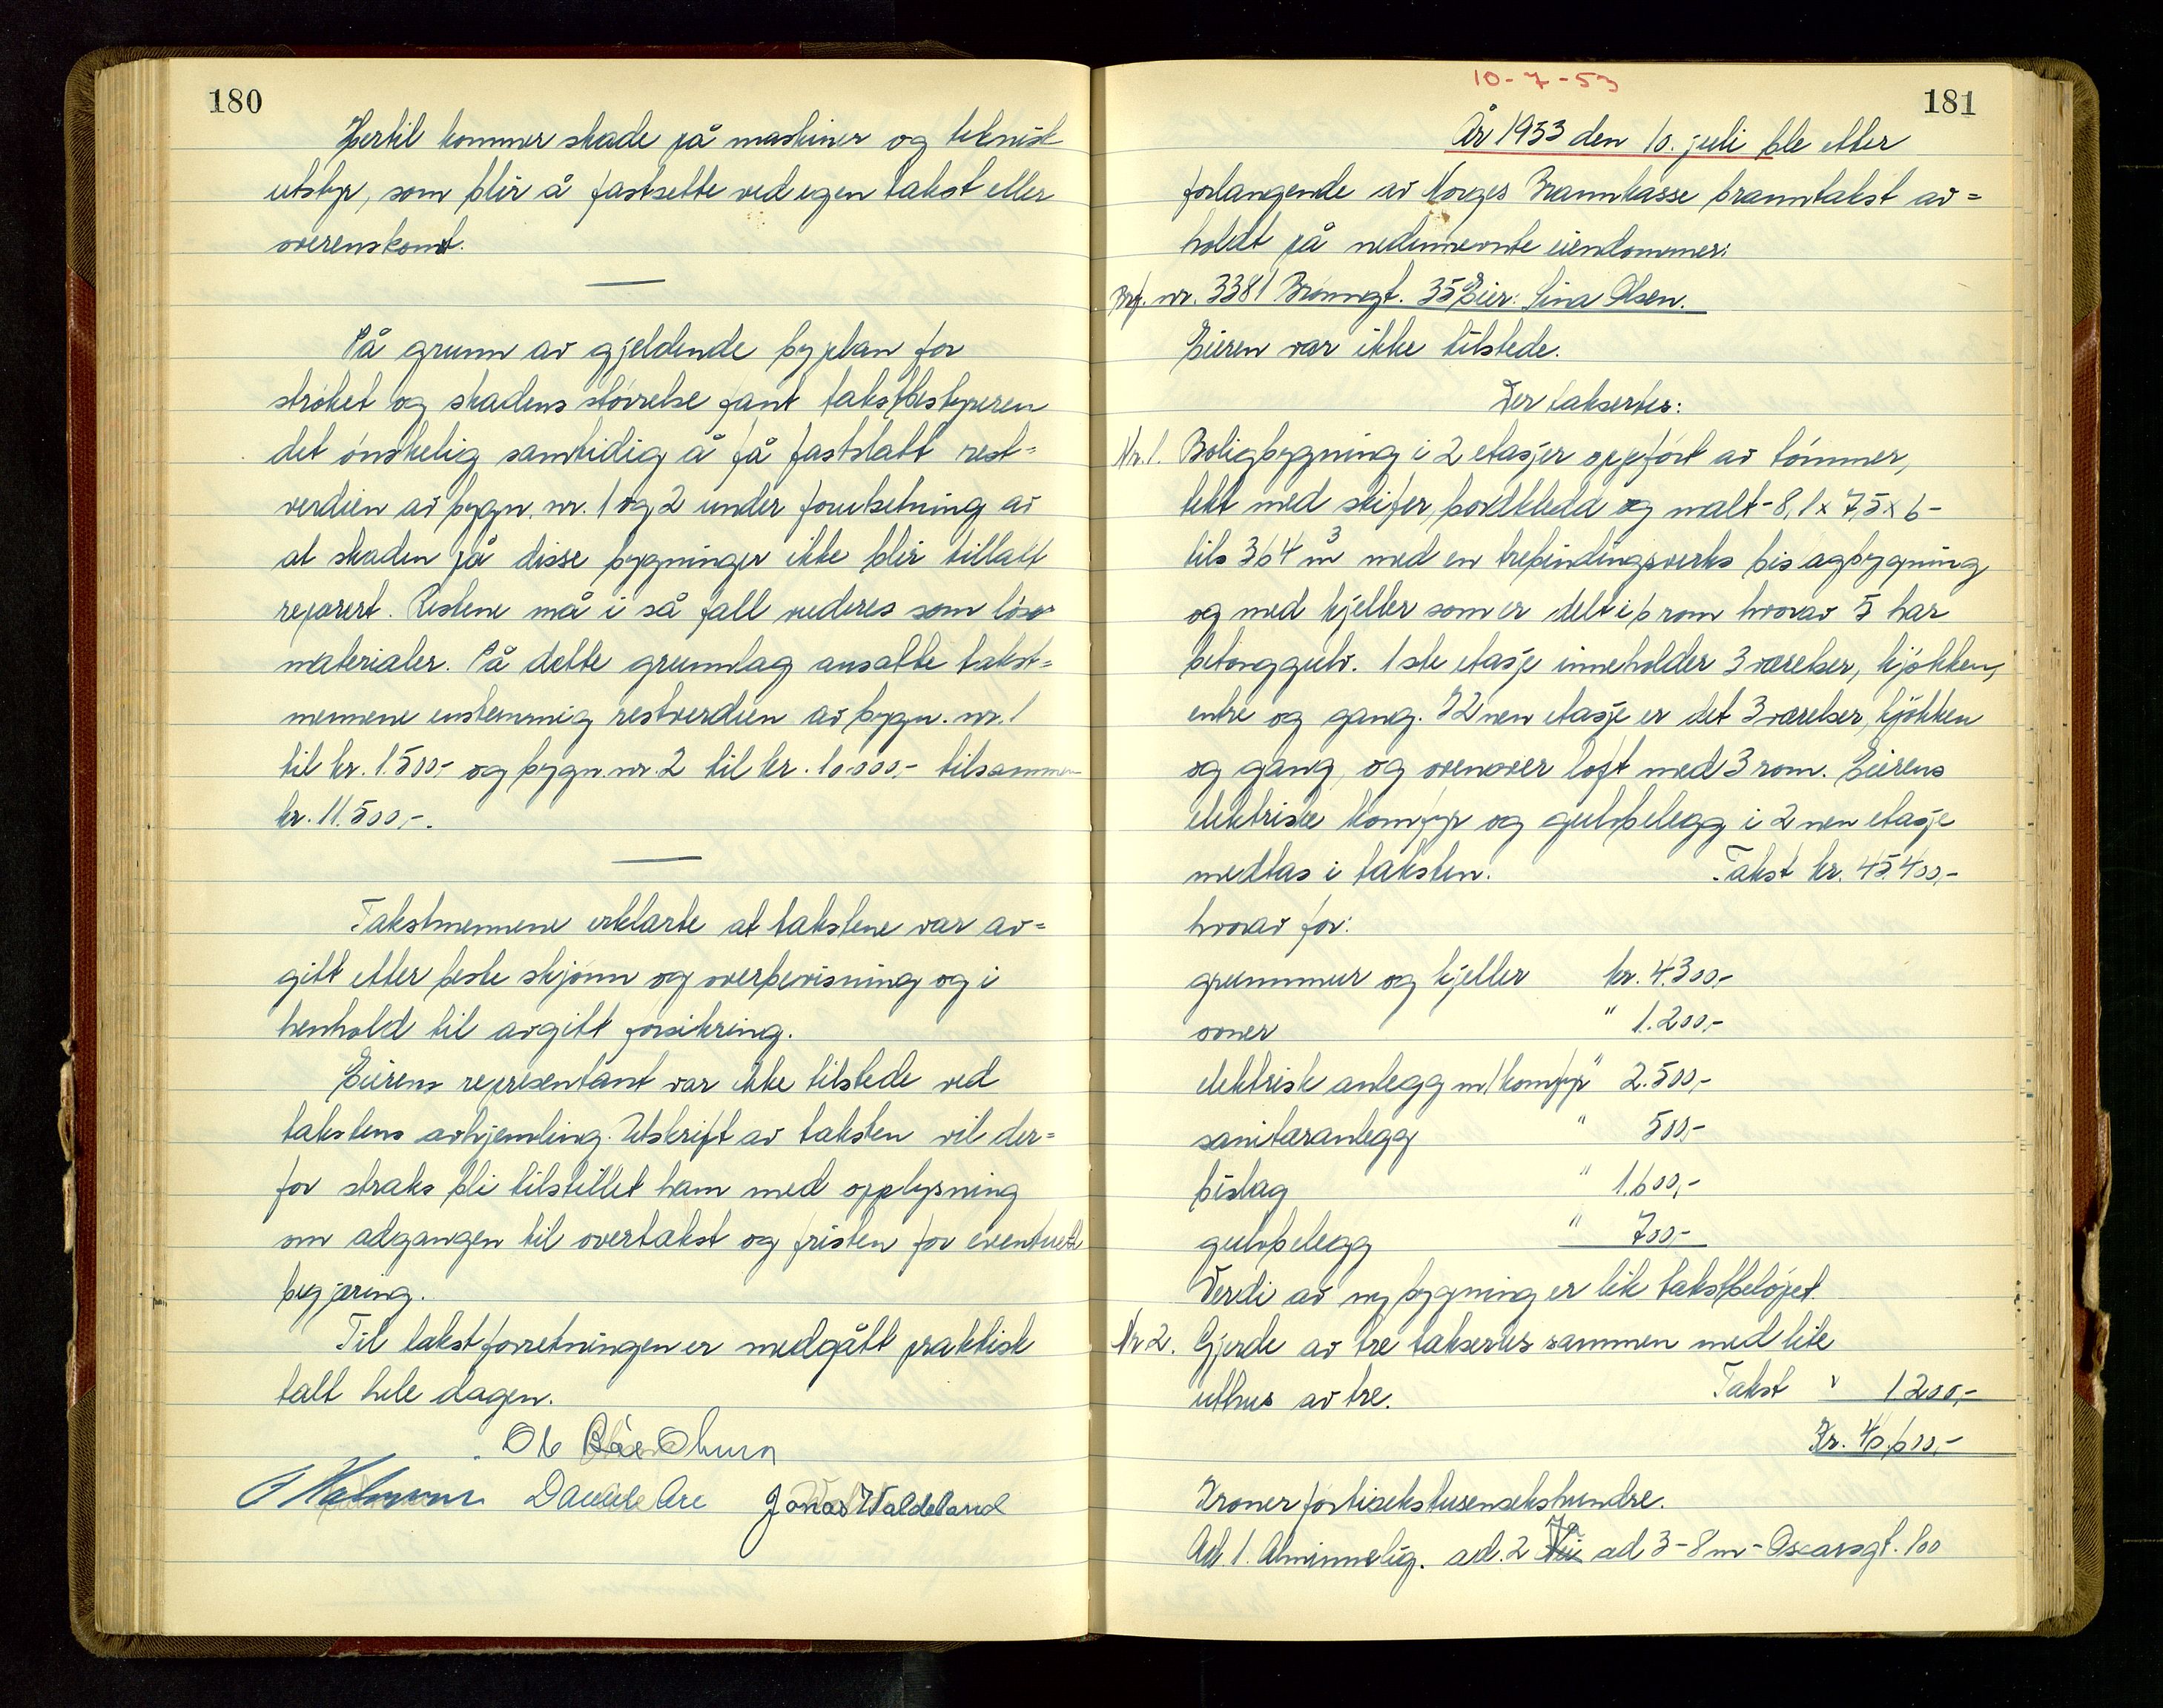 180
Hertil kommer skade på maskiner og teknisk
utstyr, som blir å fastsette ved egen takst eller
overenskomst.
På grunn av gjeldende byplan for
strøket og skadens størrelse fant takstbestyreren
det ønskelig samtidig å få fastslått rest=
verdien av bygn. nr. 1 og 2 under forutsetning av
at skaden på disse bygninger ikke blir tillatt
reparert. Restene må i så fall vurderes som løse
materialer. På dette grunnlag ansatte takst=
mennene enstemmig restverdien av bygn. nr. 1
til kr. 1.500,- og bygn. nr. 2 til kr. 10.000,- tilsammen
kr. 11.500,-.
Takstmennene erklærte at takstene var av=
gitt etter beste skjønn og overbevisning og i
henhold til avgitt forsikring.
Eierens representant var ikke tilstede ved
takstens avhjemling. Utskrift av taksten vil der=
for straks bli tilstillet ham med opplysning
om adgangen til overtakst og fristen for eventuell
begjæring.
Til takstforretningen er medgått praktisk
talt hele dagen.
Jonas Waldeland
10-7-53
181
År 1953 den 10. juli ble etter
forlangende av Norges Brannkasse branntakst av=
holdt på nedennevnte eiendommer:
Brf. nr. 3381 Brønngt. 35 Eier: Sina Olsen.
Eieren var ikke tilstede.
Der takseres:
Nr. 1. Boligbygning i 2 etasjer oppført av tømmer,
tekt med skifer, bordkledd og malt - 8,1 x 7,5 x 6 -
tils 364 m³ med en trebindingsverks bislagbygning
og med kjeller som er delt i 6 rom hvorav 5 har
betonggulv. 1ste etasje inneholder 3 værelser, kjøkken,
entre og gang. I 2nen etasje er det 3 værelser, kjøkken
og gang, og ovenover loft med 3 rom. Eierens
elektriske komfyr og gulvbelegg i 2nen etasje
medtas i taksten. Takst kr. 45.400,-
hvorav for:
grunnmur og kjeller kr. 4.300,-
ovner " 1.200,-
elektrisk anlegg m/komfyr " 2.500,-
sanitæranlegg " 500,-
bislag " 1.600,-
gulvbelegg " 700,-
Verdi av ny bygning er lik takstbeløpet.
Nr 2. Gjerde av tre takseres sammen med lite
uthus av tre. Takst " 1.200,-
Kr. 46.600,-
Kroner førtisekstusensekshundre.
Ad. 1. Alminnelig. ad. 2 Ja ad 3 - 8 m - Oscarsgt. 100